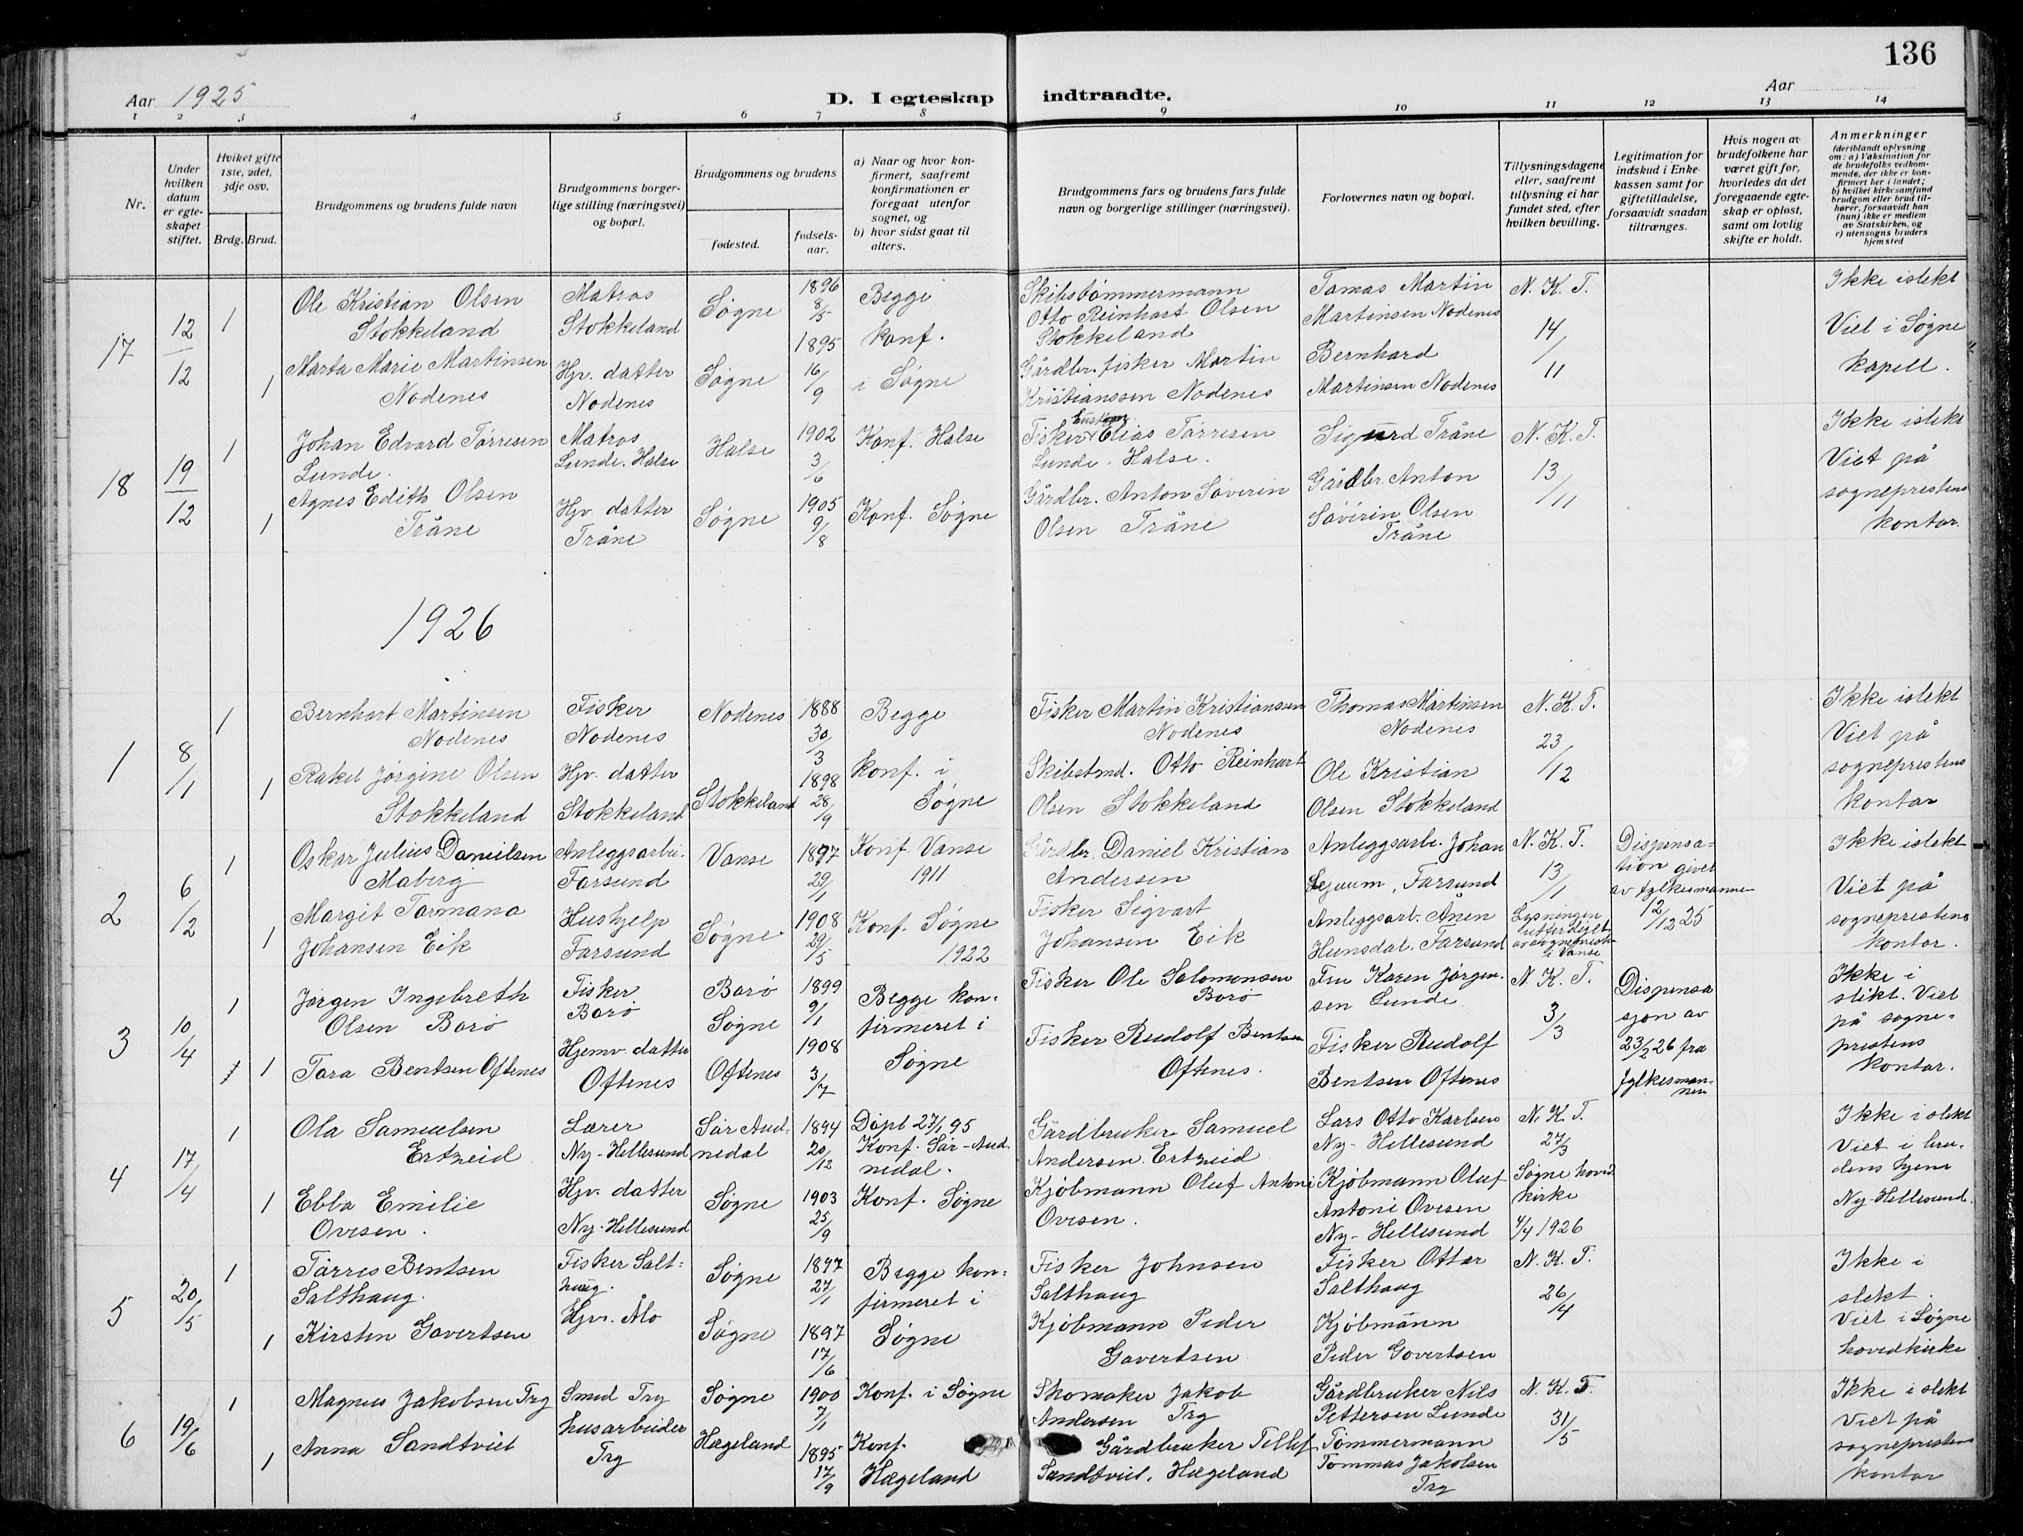 136
Aar 1925
D. I egteskap indtraadte.
Aar
1 2 3 4 5 6 7 8 9 10 11 12 13 14
Nr.
Under hvilken datum er egteskapet stiftet.
Hviket gifte 1ste, 2det, 3dje osv.
Brdg. Brud.
Brudgommens og brudens fulde navn
Brudgommens borgerlige stilling (næringsvei) og bopæl.
Brudgommens og brudens
fødested.
fødselsaar.
a) Naar og hvor konfirmert, saafremt konfirmationen er foregaat utenfor sognet, og
b) hvor sidst gaat til alters.
Brudgommens fars og brudens fars fulde navn og borgerlige stillinger (næringsvei).
Forlovernes navn og bopæl.
Tillysningsdagene eller, saafremt tillysning ei har fundet sted, efter hvilken bevilling.
Legitimation for indskud i Enkekassen samt for giftetilladelse, forsaavidt saadan tiltrænges.
Hvis nogen av brudefolkene har været gift før, hvorledes da det foregaaende egteskap er opløst, samt om lovlig skifte er holdt.
Anmerkninger (deriblandt oplysning om: a) Vaksination for de brudefolks vedkommende, der ikke er konfirmert her i landet; b) hvilket kirkesamfund brudgom eller brud tilhører, forsaavidt han (hun) ikke er medlem av Statskirken, og c) utensogns bruders hjemsted
17
12/12
1
Ole Kristian Olsen
Stokkeland
Matros
Stokkeland
Søgne
1896
8/5
Begge
konf.
i Søgne
Skibstømmermann
Otto Reinhart Olsen
Stokkeland
Tomas Martin
Martinsen Nodenes
N. K. T.
14/11
Ikke i slekt
Viet i Søgne
kapell.
1
Marta Marie Martinsen
Nodenes
Hjv. datter
Nodenes
Søgne
1895
16/9
Gårdbr. fisker Martin
Kristianssen Nodenes
Bernhard
Martinsen Nodenes
18
19/12
1
Johan Edvard Tørresen
Lunde.
Matros
Lunde. Halse
Halse
1902
3/6
Konf. Halse
Fisker Elias Tørresen
Lunde. Halse.
Sigurd Tråne
N. K. T.
13/11
Ikke i slekt
Viet på
sogneprestens
kontor.
1
Agnes Edith Olsen
Tråne
Hjv. datter
Tråne
Søgne
1905
9/8
Konf. Søgne
Gårdbr. Anton Søverin
Olsen Tråne
Gårdbr. Anton
Søverin Olsen
Tråne
1926
1
8/1
1
Bernhart Martinsen
Nodenes
Fisker
Nodenes
Nodenes
1888
30/3
Begge
konf. i
Søgne
Fisker Martin Kristianssen
Nodenes
Thomas Martinsen
Nodenes
N. K. T.
23/12
Ikke i slekt
Viet på
sogneprestens
kontor
1
Rakel Jørgine Olsen
Stokkeland
Hjv. datter
Stokkeland
Stokkeland
1898
28/9
Skibstmd. Otto Reinhart
Olsen Stokkeland
Ole Kristian
Olsen Stokkeland
2
6/2
1
Oskar Julius Danielsen
Maberg
Anleggsarbei.
Farsund
Vanse
1897
29/1
Konf. Vanse
1911
Gårdbr. Daniel Kristian
Andersen
Anleggsarbe. Johan
Farsund
N. K. T.
13/1
Lysningen
utferdiget
av sogneprest
i Vanse
Dispensation
givet
av fylkesmannen
12/12 25
Ikke i slekt
Viet på
sogneprestens
kontor.
1
Margit Tormana
Johansen Eik
Hushjelp
Farsund
Søgne.
1908
29/5
Konf. Søgne
1922
Fisker Sigvart
Johansen Eik
Anleggsarb. Ånen
Hunsdal. Farsund
3
10/4
1
Jørgen Ingebreth
Olsen Borø
Fisker
Borø
Borø
Søgne
1899
9/1
Begge konfirmeret
i
Søgne
Fisker Ole Salomonsen
Borø
Fru Karen Jørgensen
Lunde
N. K. T.
3/3
Dispensasjon
av
23/2 26 fra
fylkesmannen
Ikke i
slekt. Viet
på sogneprestens
kontor.
1
Tora Bentsen Oftenes
Hjemv. datter
Oftenes
Oftenes
1908
3/7
Fisker Rudolf Bentsen
Oftenes.
Fisker Rudolf
Bentsen Oftenes
4
17/4
1
Ola Samuelsen
Ertzeid
Lærer
Ny-Hellesund
Sør Audnedal
1894
20/12
Døpt 27/1 95
Konf. Sør-Audnedal.
Gårdbruker Samuel
Andersen Ertzeid
Lars Otto Karlsen
Ny-Hellesund
N. K. T.
27/3
Søgne hovedkirke
4/4 1926
Ikke i slekt
Viet i brudens
hjem
Ny-Hellesund.
1
Ebba Emilie
Ovesen.
Hjv. datter
Ny-Hellesund
Søgne
1903
25/9
Konf. Søgne
Kjøbmann Oluf Antoni
Ovesen.
Kjøbmann Oluf
Antoni Ovesen
Ny-Hellesund
5
20/5
1
Tørres Bentsen
Salthaug.
Fisker Salthaug.
Søgne
1897
27/1
Begge konfirmeret
i
Søgne
Fisker Johnsen
Salthaug
Fisker Ottar
Salthaug
N. K. T.
26/4
Ikke i
slekt.
Viet i Søgne
hovedkirke
1
Kirsten Govertsen
Hjv. Ålo
Søgne
1897
17/6
Kjøbmann Peder
Govertsen
Kjøbmann
Peder Govertsen
6
19/6
1
Magnus Jakobsen Try
Smed Try
Søgne
1900
7/1
Konf. i Søgne
Skomaker Jakob
Andersen Try
Gårdbruker Nils
Pettersen Lunde
N. K. T.
31/5
Ikke i slekt
Viet på
sogneprestens
kontor
1
Anna Sandtveit
husarbeider
Try
Hægeland
1895
17/9
Konf.
Hægeland
Gårdbruker Tellef
Sandtveit, Hægeland
Tømmermann
Tommas Jakobsen
Try